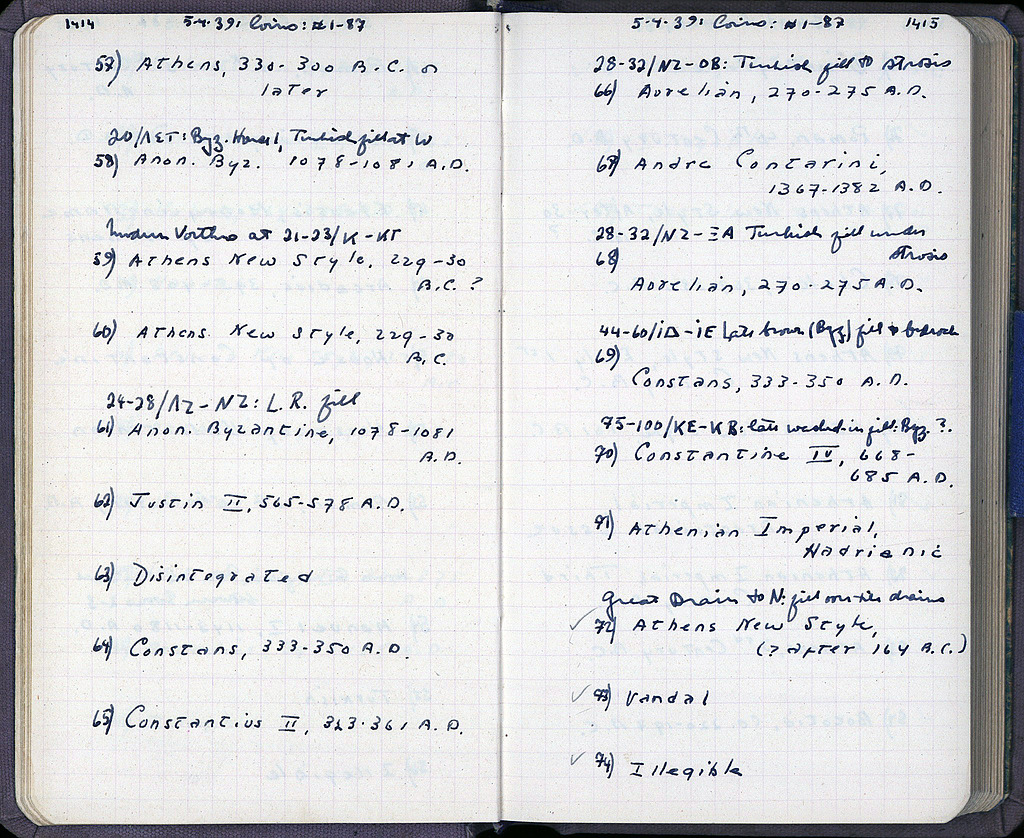 1414
5-4-39: Coins: #1-87
57) Athens, 330-300 B.C. or
later
20/ΛΣΤ: Byz. House 1, Turkish fill at W
58) Anon. Byz. 1078-1081 A.D.
Modern Vothros at 21-23/Κ-ΚΣΤ
59) Athens New Style, 229-30
B.C. ?
60) Athens New Style, 229-30
B.C.
24-28/ΛΖ-ΝΖ: L.R. fill
61) Anon. Byzantine, 1078-1081
A.D.
62) Justin II, 565-578 A.D.
63) Disintegrated
64) Constans, 333-350 A.D.
65) Constantius II, 323-361 A.D.
5-4-39: Coins: #1-87
1415
28-32/ΝΖ-ΟΒ: Turkish fill to strosis
66) Aurelian, 270-275 A.D.
67) Andre Contarini,
1367-1382 A.D.
28-32/ΝΖ-ΞΑ Turkish fill under
strosis
68)
Aurelian, 270-275 A.D.
44-60/ΙΔ-ΙΕ Late brown (Byz) fill to bedrock
69)
Constans, 333-350 A.D.
75-100/ΚΕ-ΚΒ: late washed-in fill: Byz ?.
70) Constantine IV, 668-
685 A.D.
71) Athenian Imperial,
Hadrianic
Great Drain to N. fill over tile drains
72) Athens New Style,
(? after 164 B.C.)
73) Vandal
74) Illegible